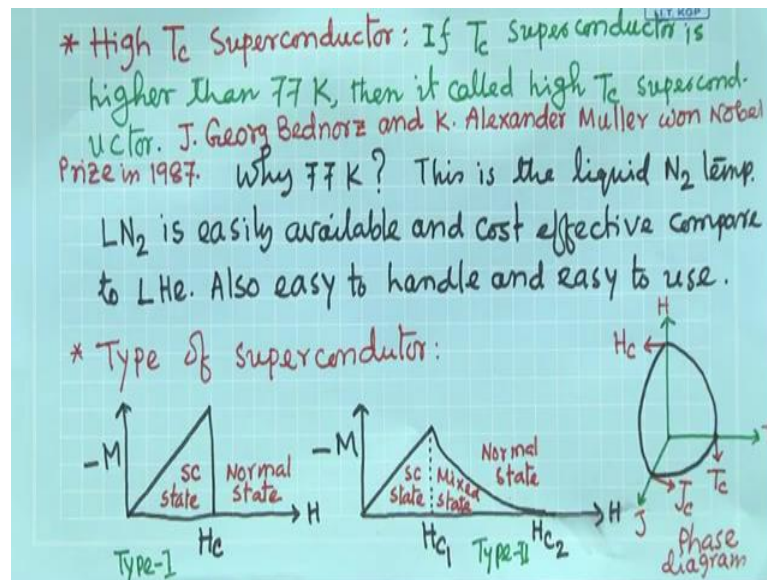 I.I.T. KGP
* High Tc Superconductor: If Tc superconductor is
higher than 77 K, then it called high Tc supercond-
uctor. J. Georg Bednorz and K. Alexander Muller won Nobel
Prize in 1987. Why 77 K? This is the liquid N2 temp.
LN2 is easily available and cost effective compare
to LHe. Also easy to handle and easy to use.
* Type of supercondutor:
-M
SC
state
Normal
state
H
Hc
Type-I
-M
SC
state
Mixed
state
Normal
state
H
Hc1
Type-II
Hc2
H
Hc
Tc
Jc
J
Phase
diagram